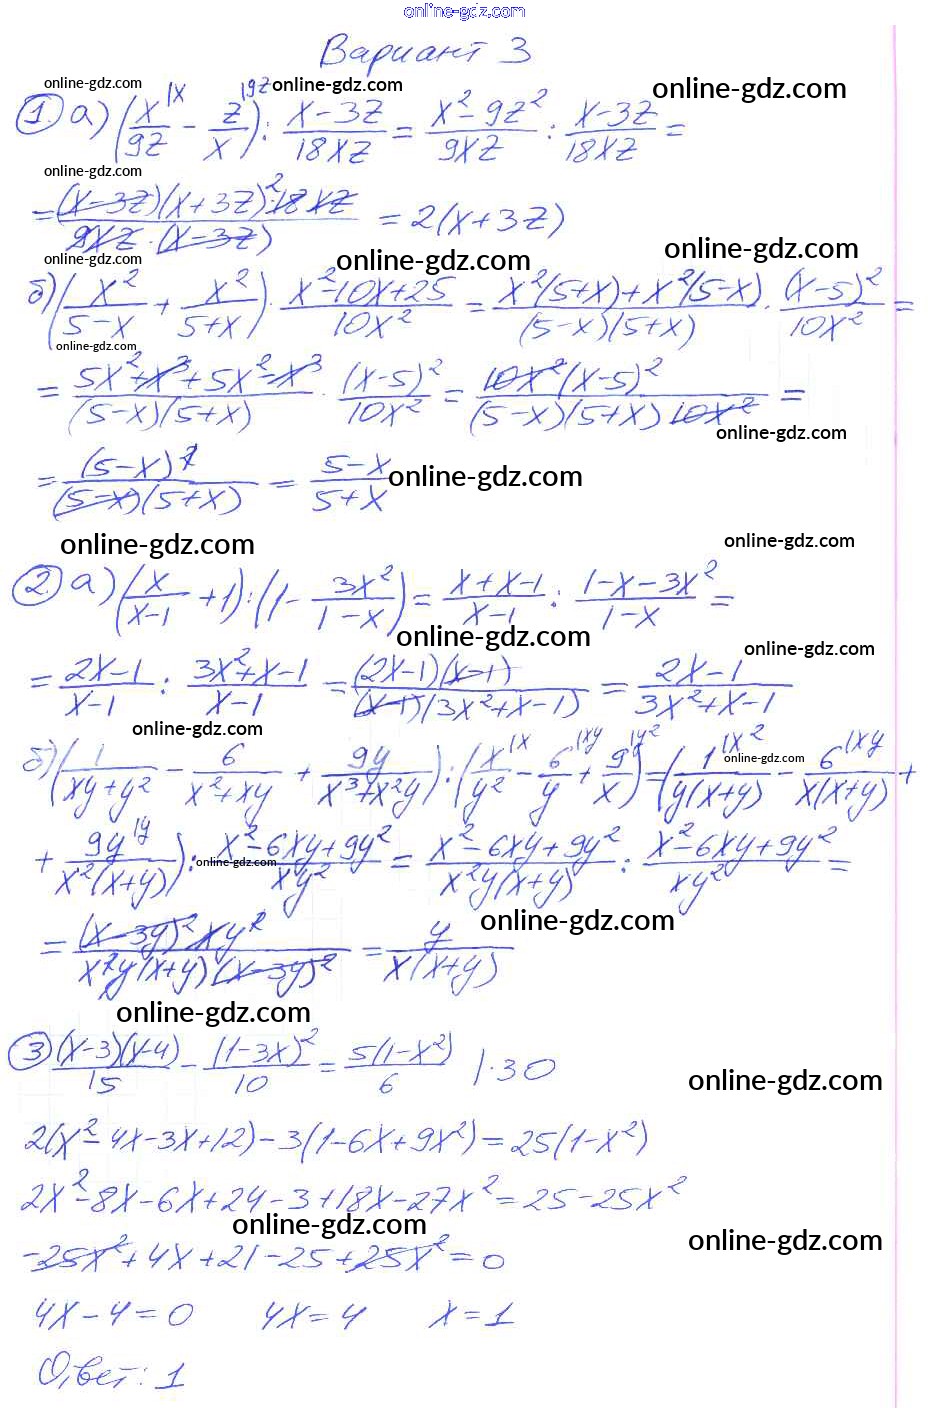 online-gdz.com
Вариант 3
online-gdz.com online-gdz.com online-gdz.com
1. а) (x/9z |x − z/x |9z) : (x−3z)/(18xz) = (x²−9z²)/(9xz) : (x−3z)/(18xz) =
online-gdz.com
= ((x−3z)(x+3z)·18xz ²)/(9xz·(x−3z)) = 2(x+3z)
online-gdz.com online-gdz.com online-gdz.com
б) (x²/(5−x) + x²/(5+x)) · (x²−10x+25)/(10x²) = (x²(5+x)+x²(5−x))/((5−x)(5+x)) · (x−5)²/(10x²) =
online-gdz.com
= (5x²+x³+5x²−x³)/((5−x)(5+x)) · (x−5)²/(10x²) = (10x²(x−5)²)/((5−x)(5+x)10x²) =
online-gdz.com
= (5−x)²/((5−x)(5+x)) = (5−x)/(5+x)
online-gdz.com
online-gdz.com online-gdz.com
2. а) (x/(x−1) + 1) : (1 − 3x²/(1−x)) = (x+x−1)/(x−1) : (1−x−3x²)/(1−x) =
online-gdz.com
online-gdz.com
= (2x−1)/(x−1) : (3x²+x−1)/(x−1) = ((2x−1)(x−1))/((x−1)(3x²+x−1)) = (2x−1)/(3x²+x−1)
online-gdz.com
б) (1/(xy+y²) − 6/(x²+xy) + 9y/(x³+x²y)) : (x/y² |x − 6/y |xy + 9/x |y²) = (1/(y(x+y)) |x² − 6/(x(x+y)) |xy +
online-gdz.com
+ 9y/(x²(x+y)) |y) : (x²−6xy+9y²)/(xy²) = (x²−6xy+9y²)/(x²y(x+y)) : (x²−6xy+9y²)/(xy²) =
online-gdz.com
online-gdz.com
= ((x−3y)²xy²)/(x²y(x+y)(x−3y)²) = y/(x(x+y))
online-gdz.com
3 ((x−3)(x−4))/15 − (1−3x)²/10 = (5(1−x²))/6 |·30
online-gdz.com
2(x²−4x−3x+12)−3(1−6x+9x²)=25(1−x²)
2x²−8x−6x+24−3+18x−27x²=25−25x²
online-gdz.com
online-gdz.com
−25x²+4x+21−25+25x²=0
4x−4=0 4x=4 x=1
Ответ: 1